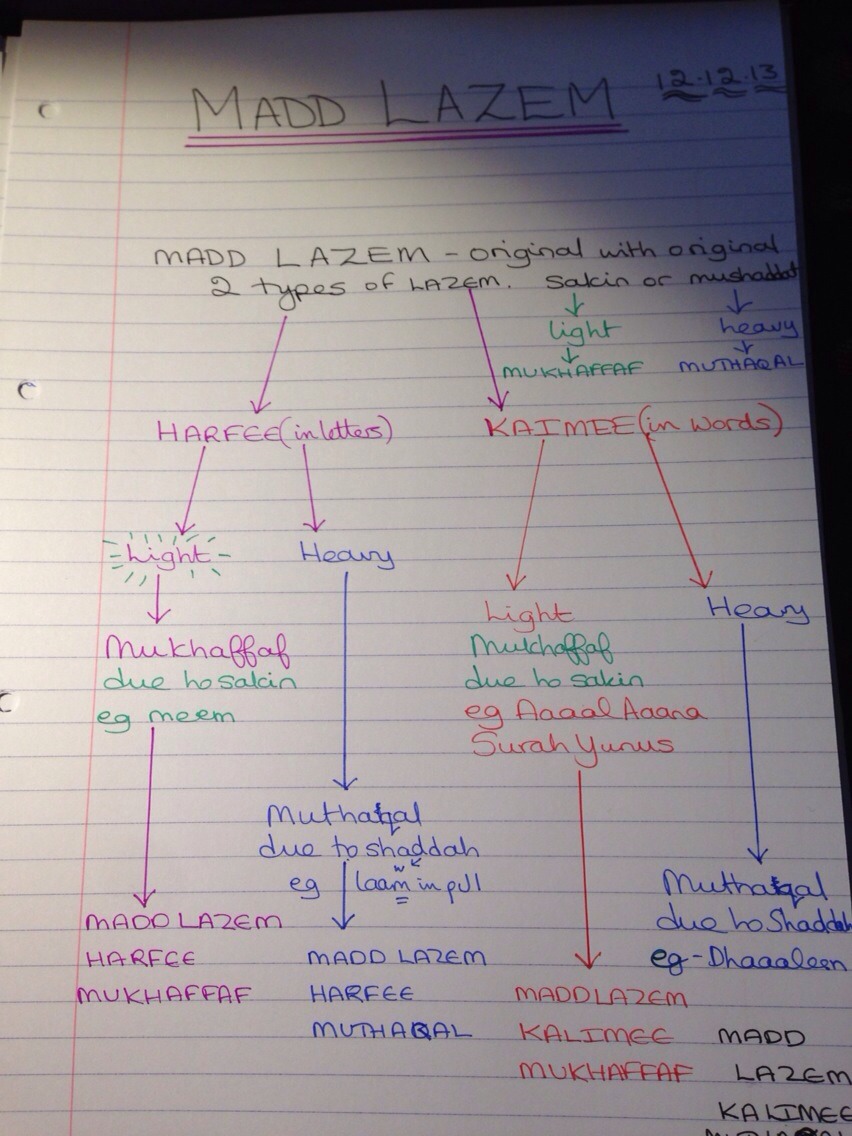 MADD LAZEM
12.12.13
MADD LAZEM - original with original
2 types of LAZEM. sakin or mushaddat
light heavy
MUKHAFFAF MUTHAQAL
HARFEE (in letters) KAIMEE (in words)
Light Heavy
Mukhaffaf
due to sakin
eg meem
Muthaqal
due to shaddah
eg laam in الم
MADD LAZEM
HARFEE
MUKHAFFAF
MADD LAZEM
HARFEE
MUTHAQAL
Light
Mukhaffaf
due to sakin
eg Aaaal Aaana
Surah Yunus
MADD LAZEM
KALIMEE
MUKHAFFAF
Heavy
Muthaqal
due to Shaddah
eg - Dhaaaleen
MADD
LAZEM
KALIMEE